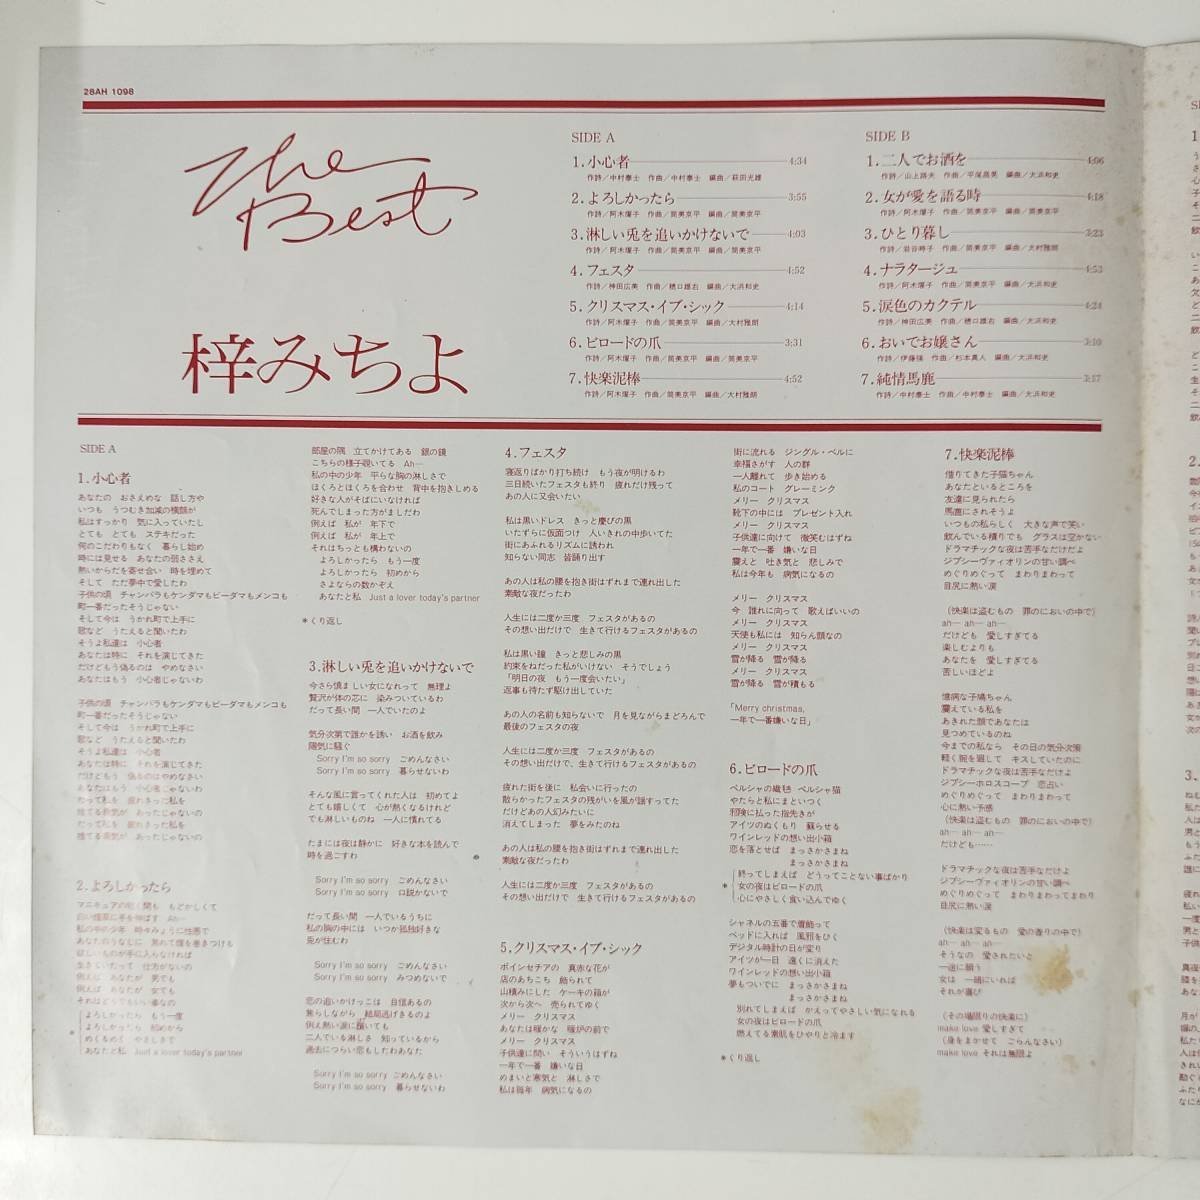 28AH 1098
The Best
梓みちよ
SIDE A
1.小心者 4:34
作詩/中村泰士 作曲/中村泰士 編曲/萩田光雄
2.よろしかったら 3:55
作詩/阿木燿子 作曲/筒美京平 編曲/筒美京平
3.淋しい兎を追いかけないで 4:03
作詩/阿木燿子 作曲/筒美京平 編曲/筒美京平
4.フェスタ 4:52
作詩/神田広美 作曲/穂口雄右 編曲/大浜和史
5.クリスマス・イブ・シック 4:14
作詩/阿木燿子 作曲/筒美京平 編曲/大村雅朗
6.ビロードの爪 3:31
作詩/阿木燿子 作曲/筒美京平 編曲/筒美京平
7.快楽泥棒 4:52
作詩/阿木燿子 作曲/筒美京平 編曲/大村雅朗
SIDE B
1.二人でお酒を 4:06
作詩/山上路夫 作曲/平尾昌晃 編曲/大浜和史
2.女が愛を語る時 4:18
作詩/阿木燿子 作曲/筒美京平 編曲/大浜和史
3.ひとり暮し 3:23
作詩/岩谷時子 作曲/筒美京平 編曲/大村雅朗
4.ナラタージュ 4:53
作詩/阿木燿子 作曲/筒美京平 編曲/大浜和史
5.涙色のカクテル 4:24
作詩/神田広美 作曲/穂口雄右 編曲/大浜和史
6.おいでお嬢さん 3:10
作詩/伊藤強 作曲/杉本真人 編曲/大浜和史
7.純情馬鹿 3:17
作詩/中村泰士 作曲/中村泰士 編曲/大浜和史
SIDE A
1.小心者
あなたの おさえめな 話し方や
いつも うつむき加減の横顔が
私はすっかり 気に入っていたし
とても とても ステキだった
何のこだわりもなく 暮らし始め
時には見せる あなたの弱ささえ
熱いからだを寄せ合い 時を埋めて
そして ただ夢中で愛したわ
子供の頃 チャンバラもケンダマもビーダマもメンコも
町一番だったそうじゃない
そして今は うかれ町で上手に
歌など うたえると聞いたわ
そうよ私達は 小心者
あなたは特に それを演じてきた
だけどもう偽るのは やめなさい
あなたはもう 小心者じゃないわ
子供の頃 チャンバラもケンダマもビーダマもメンコも
町一番だったそうじゃない
そして今は うかれ町で上手に
歌など うたえると聞いたわ
そうよ私達は 小心者
あなたは特に それを演じてきた
だけどもう 偽るのはやめなさい
あなたはもう 小心者じゃないわ
だって私を 疲れきった私を
捨てる勇気が あったじゃないの
だって私を 疲れきった私を
捨てる勇気が あったじゃないの
2.よろしかったら
マニキュアの乾く間も もどかしくて
白い煙草に手を伸ばす Ah—
私の中の少年 時々みように性悪で
あなたのうなじに 熟れて煙を巻きつける
欲しいものが手に入らなければ
生きていたって 仕方がないの
例えば あなたが 男でも
例えば あなたが 女でも
それはどうでもいい事なの
よろしかったら もう一度
よろしかったら 初めから
めくるめく やさしさで
あなたと私 Just a lover today's partner
部屋の隅 立てかけてある 銀の鏡
こちらの様子覗いてる Ah—
私の中の少年 平らな胸の淋しさで
ほくろとほくろを合わせ 背中を抱きしめる
好きな人がそばにいなければ
死んでしまった方がましだわ
例えば 私が 年下で
例えば 私が 年上で
それはちっとも構わないの
よろしかったら もう一度
よろしかったら 初めから
さよならの数かぞえ
あなたと私 Just a lover today's partner
*くり返し
3.淋しい兎を追いかけないで
今さら慎ましい女になれって 無理よ
贅沢が体の芯に 染みついているわ
だって長い間 一人でいたのよ
気分次第で誰かを誘い お酒を飲み
陽気に騒ぐ
Sorry I'm so sorry ごめんなさい
Sorry I'm so sorry 暮らせないわ
そんな風に言ってくれた人は 初めてよ
とても嬉しくて 心が熱くなるけれど
でも淋しいものね 一人に慣れてる
たまには夜は静かに 好きな本を読んで
時を過ごすわ
Sorry I'm so sorry ごめんなさい
Sorry I'm so sorry 口説かないで
だって長い間 一人でいるうちに
私の胸の中には いつか孤独好きな
兎が住むわ
Sorry I'm so sorry ごめんなさい
Sorry I'm so sorry みつめないで
恋の追いかけっこは 自信あるの
焦らしながら 結局逃げきるのよ
例え熱い涙に頷いても
二人でいる淋しさ 知っているから
過去につらい恋もしたわあなた
Sorry I'm so sorry ごめんなさい
Sorry I'm so sorry 暮らせないわ
4.フェスタ
寝返りばかり打ち続け もう夜が明けるわ
三日続いたフェスタも終り 疲れだけ残って
あの人に又会いたい
私は黒いドレス きっと慶びの黒
いたずらに仮面つけ 人いきれの中歩いてた
街にあふれるリズムに誘われ
知らない同志 皆踊り出す
あの人は私の腰を抱き街はずれまで連れ出した
素敵な夜だったわ
人生には二度か三度 フェスタがあるの
その想い出だけで 生きて行けるフェスタがあるの
私は黒い鐘 きっと悲しみの黒
約束をねだった私がいけない そうでしょう
「明日の夜 もう一度会いたい」
返事も待たず駆け出していた
あの人の名前も知らないで 月を見ながらまどろんで
最後のフェスタの夜
人生には二度か三度 フェスタがあるの
その想い出だけで、生きて行けるフェスタがあるの
疲れた街を後に 私会いに行ったの
散らかったフェスタの残がいを風が揺すってた
だけどあの人幻みたいに
消えてしまった 夢をみたのね
あの人は私の腰を抱き街はずれまで連れ出した
素敵な夜だったわ
人生には二度か三度 フェスタがあるの
その想い出だけで 生きて行けるフェスタがあるの
5.クリスマス・イブ・シック
ポインセチアの 真赤な花が
店のあちこち 飾られて
山積みにした ケーキの箱が
次から次へ 売られてゆく
メリー クリスマス
あなたは暖かな 暖炉の前で
メリー クリスマス
子供達に問い そういうはずね
一年で一番 嫌いな日
めまいと寒気と 淋しさで
私は毎年 病気になるの
街に流れる ジングル・ベルに
幸福さがす 人の群
一人離れて 歩き始める
私のコート グレーミンク
メリー クリスマス
靴下の中には プレゼント入れ
メリー クリスマス
子供達に向けて 微笑むはずね
一年で一番 嫌いな日
震えと 吐き気と 悲しみで
私は今年も 病気になるの
メリー クリスマス
今 誰れに向って 歌えばいいの
メリー クリスマス
天使も私には 知らん顔なの
メリー クリスマス
雪が降る 雪が降る
メリー クリスマス
雪が降る 雪が積もる
「Merry christmas,
一年で一番嫌いな日」
6.ビロードの爪
ペルシャの織毯 ペルシャ猫
やたらと私にまといつく
邪険に払った指先きが
アイツのぬくもり 蘇らせる
ワインレッドの想い出小箱
恋を落とせば まっさかさまね
まっさかさまね
*
終ってしまえば どうってことない事ばかり
女の夜はビロードの爪
心にやさしく食い込んでゆく
シャネルの五番で着飾って
ベッドに入れば 風邪をひく
デジタル時計の日が変り
アイツが一日 遠くに消えた
ワインレッドの想い出小箱
夢もついでに まっさかさまね
まっさかさまね
別れてしまえば かえってやさしい気になれる
女の夜はビロードの爪
燃えてる素肌をひやりと冷ます
*くり返し
7.快楽泥棒
借りてきた子猫ちゃん
あなたといるところを
友達に見られたら
馬鹿にされそうよ
いつもの私らしく 大きな声で笑い
飲んでいる積りでも グラスは空かない
ドラマチックな夜は苦手なだけだよ
ジプシーヴァイオリンの甘い調べ
めぐりめぐって まわりまわって
目尻に熱い涙
(快楽は盗むもの 罪のにおいの中で)
ah— ah— ah—
だけども 愛しすぎてる
楽しむよりも
あなたを 愛しすぎてる
苦しいほどよ
憶病な子鳩ちゃん
震えている私を
あきれた顔であなたは
見つめているのね
今までの私なら その日の気分次第
軽く腕を廻して キスしていたのに
ドラマチックな夜は苦手なだけよ
ジプシーホロスコープ 恋占い
めぐりめぐって まわりまわって
心に熱い予感
(快楽は盗むもの 罪のにおいの中で)
ah— ah— ah—
だけども……
ドラマチックな夜は苦手なだけよ
ジプシーヴァイオリンの甘い調べ
めぐりめぐって まわりまわってまわり
目尻に熱い涙
(快楽は変るもの 愛の香りの中で)
ah— ah— ah—
そうなの 愛されたいと
一途に願う
女は 一緒にいれば
それが喜び
(その場限りの快楽に)
make love 愛しすぎて
(身をまかせて ごらんなさい)
make love それは無限よ